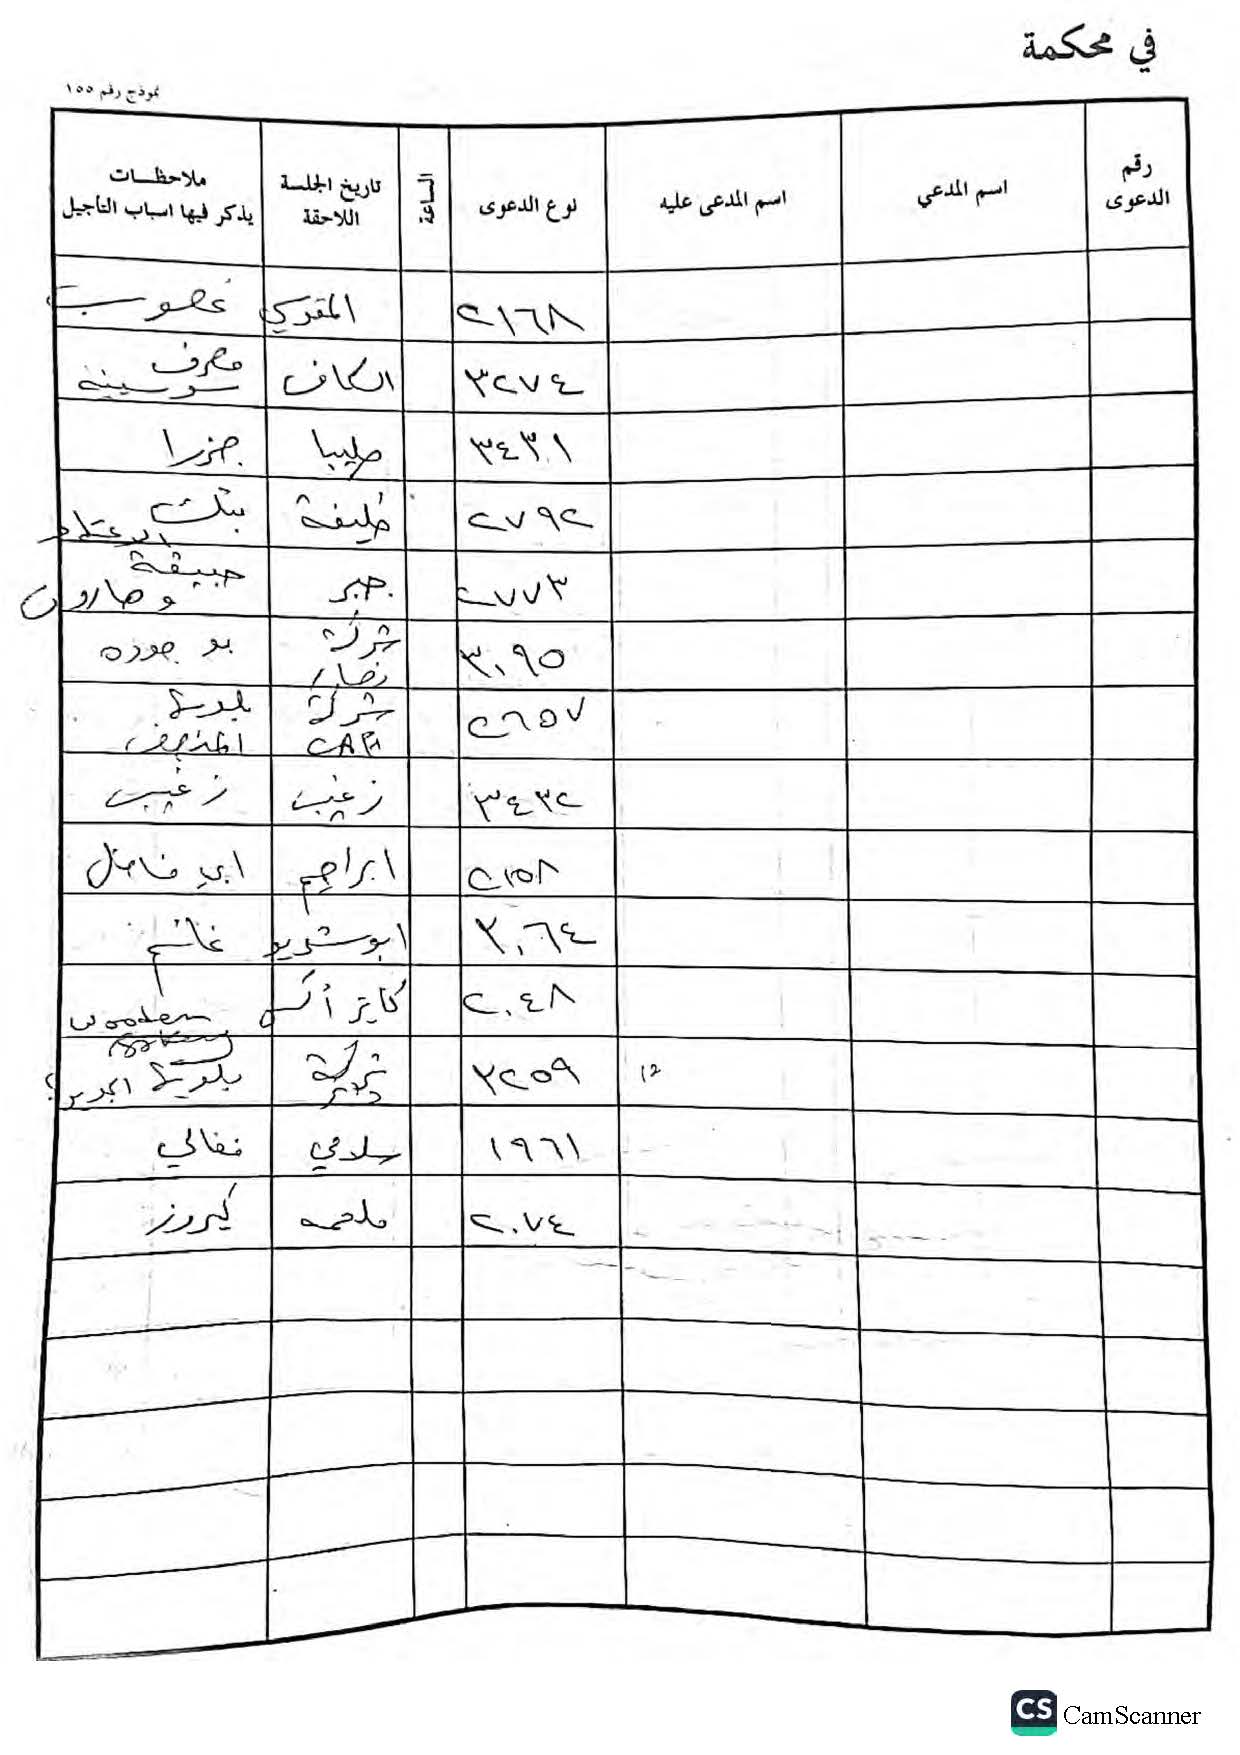 في محكمة
نموذج رقم ١٥٥
رقم الدعوى
اسم المدعي
اسم المدعى عليه
نوع الدعوى
الساعة
تاريخ الجلسة اللاحقة
ملاحظـــات يذكر فيها اسباب التأجيل
٢١٦٨ المقدسي غصوب
٣٢٧٤ الكاف مصرف سوسيته
٣٤٣١ صليبا جزرا
٢٧٩٢ خليفة بنك الاعتماد
٢٧٧٣ جبر حبيقة وهارون
٣٠٩٥ شركة نصار بو جوده
٢٦٥٧ شركة بلدية
٣٤٣٢ زغيب زغيب
٢١٥٨ ابراهيم ابي فاضل
٣٠٦٤ ابو شديد غانم
٢٠٤٨ أكس wooden
١٢ ٣٢٥٩ شركة بلدية
١٩٦١ سلامي
٢٠٧٤ ملحمه كيروز
CS CamScanner